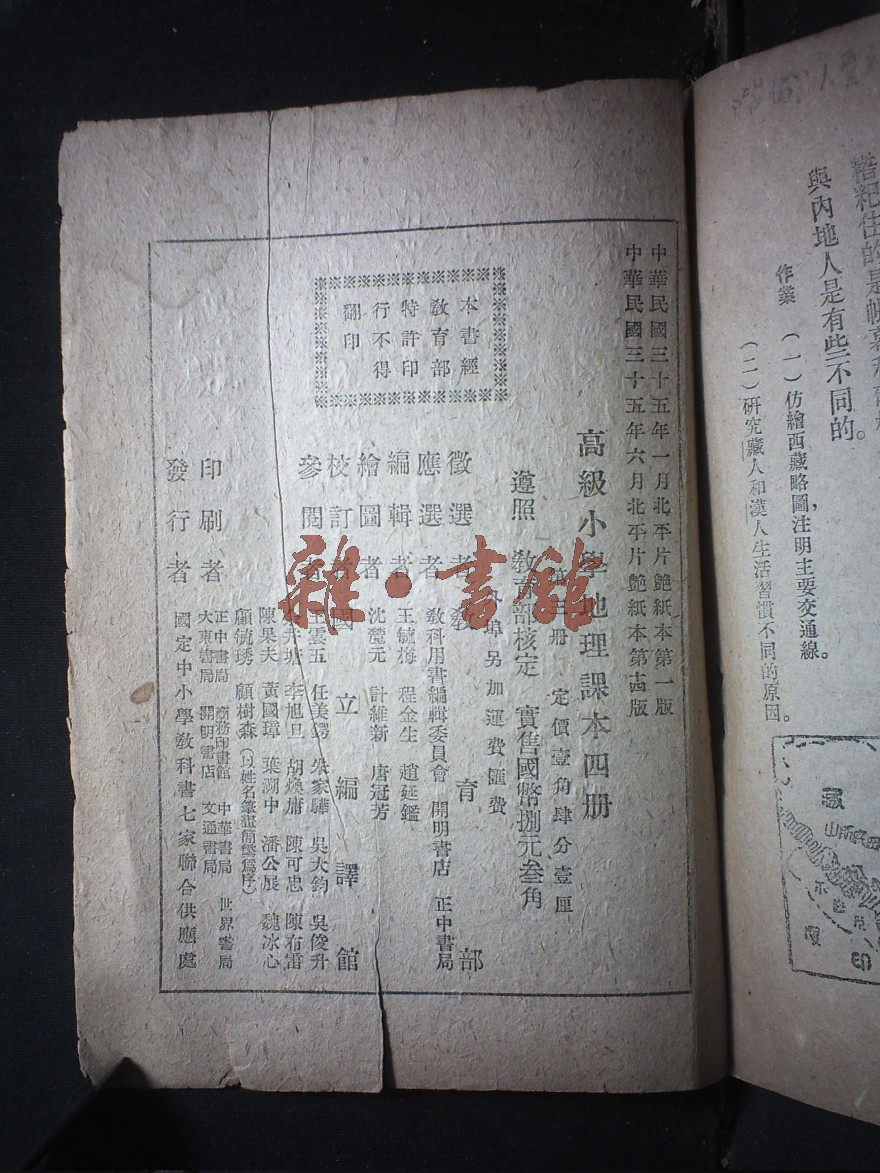 中華民國三十五年一月北平片艶紙本第一版
中華民國三十五年六月北平片艶紙本第十四版
高級小學地理課本四册
定價壹角肆分壹厘
遵照 教育部核定 實售國幣捌元叁角
外埠另加運費匯費
徵選者 教育部
應選者 教科用書編輯委員會 開明書店 正中書局
編輯者 王毓梅 程金生 趙廷鑑
繪圖者 沈麓元 計維新 唐冠芳
校訂者 國立編譯館
參閱者 王雲五 任美鍔 朱家驊 吳大鈞 吳俊升
李旭旦 胡煥庸 陳可忠 陳布雷
陳果夫 黃國璋 葉溯中 潘公展 魏冰心
顧毓琇 顧樹森(以姓名筆畫簡繁爲序)
印刷者 正中書局 商務印書館 中華書局 世界書局
大東書局 開明書店 文通書局
發行者 國定中小學教科書七家聯合供應處
本書經
教育部
特許印
行不得
翻印
雜·書館
與內地人是有些不同的。
作業 (一)仿繪西藏略圖,注明主要交通線。
(二)研究藏人和漢人生活習慣不同的原因。
印